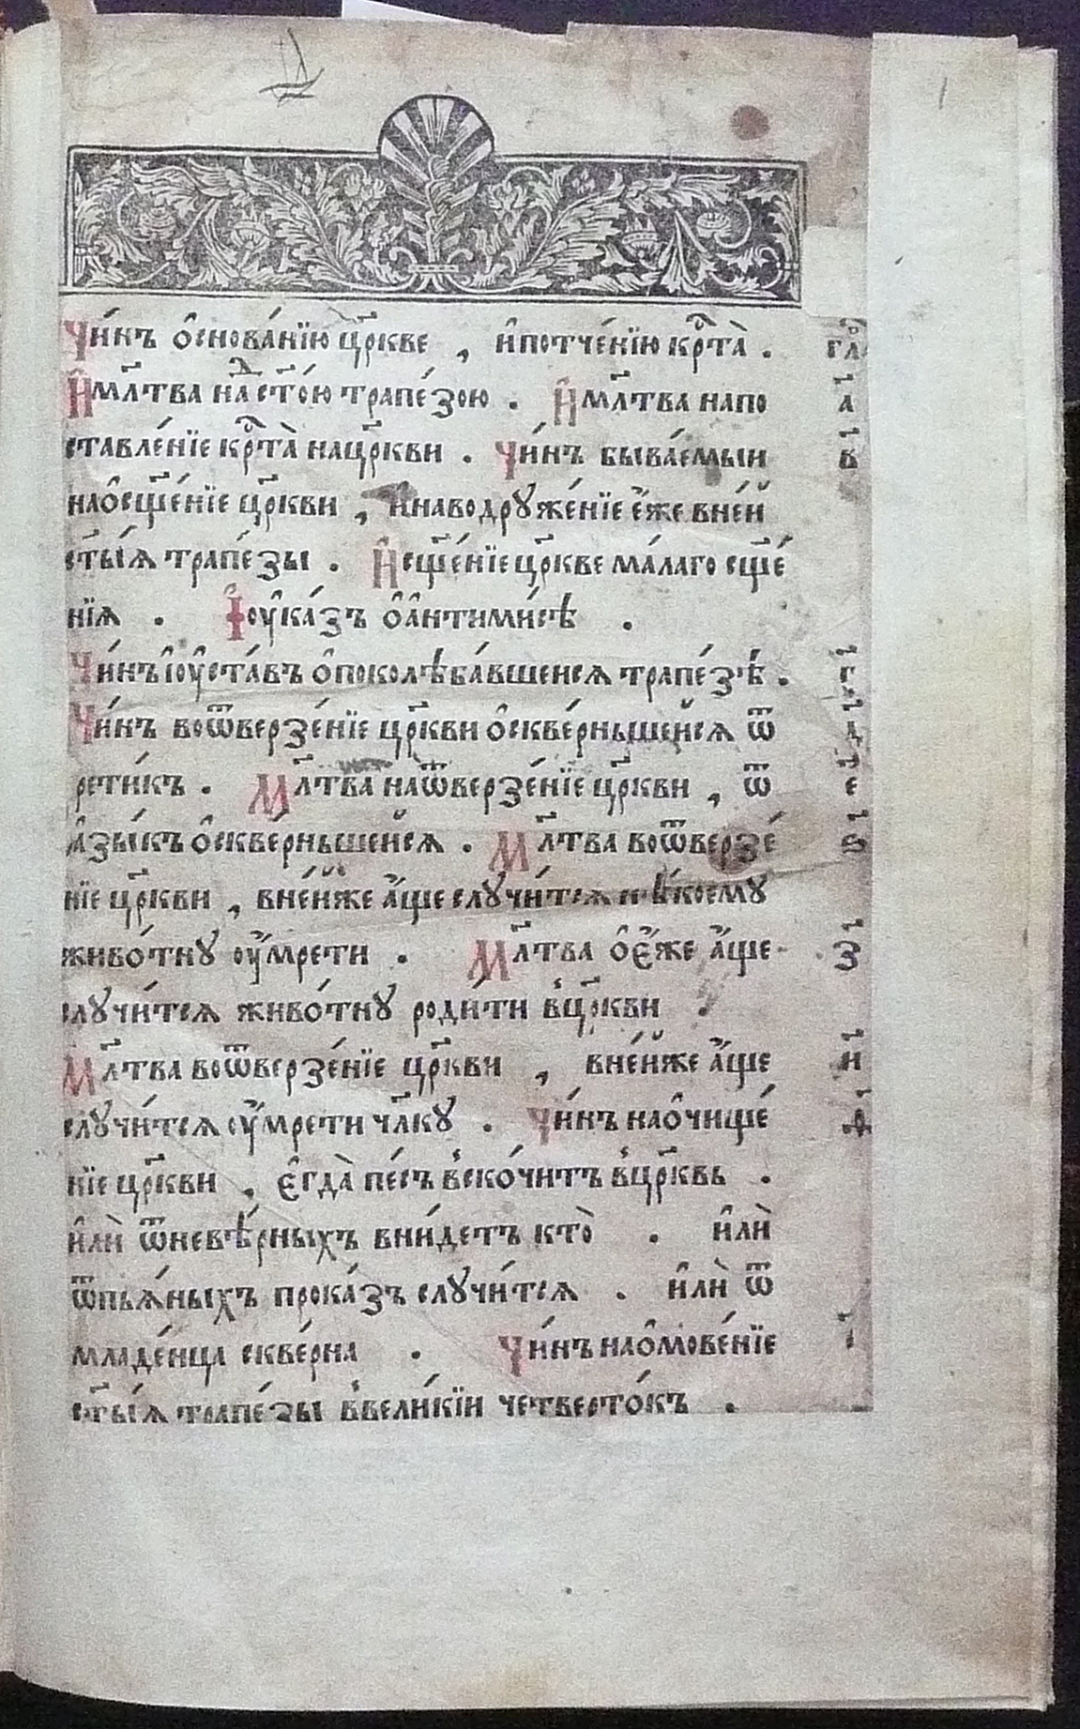 Чи́нъ ѻ҆снова́нїю цр҃кве , и҆ потче́нїю крⷭ҇та̀ . гл҃
И҆ мл҃тва над̾ ст҃о́ю трапе́зою . И҆ мл҃тва на по а҃
ставле́нїе крⷭ҇та̀ на цр҃кви . Чи́нъ быва́емыи в҃
на ѻ҆сщ҃е́нїе цр҃кви , и҆ на водрꙋже́нїе є҆́же в не́й
ст҃ы́ѧ трапе́зы . И҆ сщ҃е́нїе цр҃кве ма́лаго сщ҃е́
нїѧ . І҆ ᲂу҆ка́зъ ѻ҆ а҆нтими́сѣ .
Чи́нъ і҆ ᲂу҆ста́въ ѻ҆ поколѣба́вшеисѧ трапе́зѣ . г҃
Чи́нъ во ѿверзе́нїе цр҃кви ѻ҆скве́рньшейсѧ ѿ д҃
рети́къ . Мл҃тва на ѿверзе́нїе цр҃кви , ѿ е҃
ꙗ҆зы́къ ѻ҆скве́рньшейсѧ . Мл҃тва во ѿверзе́ ѕ҃
нїе цр҃кви , в не́йже а҆́ще слꙋчи́тсѧ н в̾коемꙋ
живо́тнꙋ ᲂу҆́мрети . Мл҃тва ѻ҆ є҆́же а҆́ще з҃
слꙋчи́тсѧ живо́тнꙋ роди́ти в̾ цр҃кви .
Мл҃тва во ѿверзе́нїе цр҃кви , в не́йже а҆́ще и҃
слꙋчи́тсѧ ᲂу҆́мрети чл҃кꙋ . Чи́нъ на ѻ҆чище́ ѳ҃
нїе цр҃кви , є҆гда̀ пе́съ в̾ско́читъ в̾ цр҃квь .
и҆лѝ ѿ невѣ́рныхъ вни́детъ кто̀ . и҆лѝ
ѿ пьѧ́ныхъ прока́зъ слꙋчи́тсѧ . и҆лѝ ѿ
младе́нца скве́рна . Чи́нъ на ѻ҆мове́нїе і҃
ст҃ы́ѧ трапе́зы в̾ вели́кїи четверто́къ .